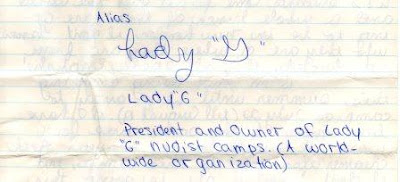 Alias
Lady "G"
Lady "G"
President and Owner of Lady
"G" nudist camps. (A world-
wide organization)